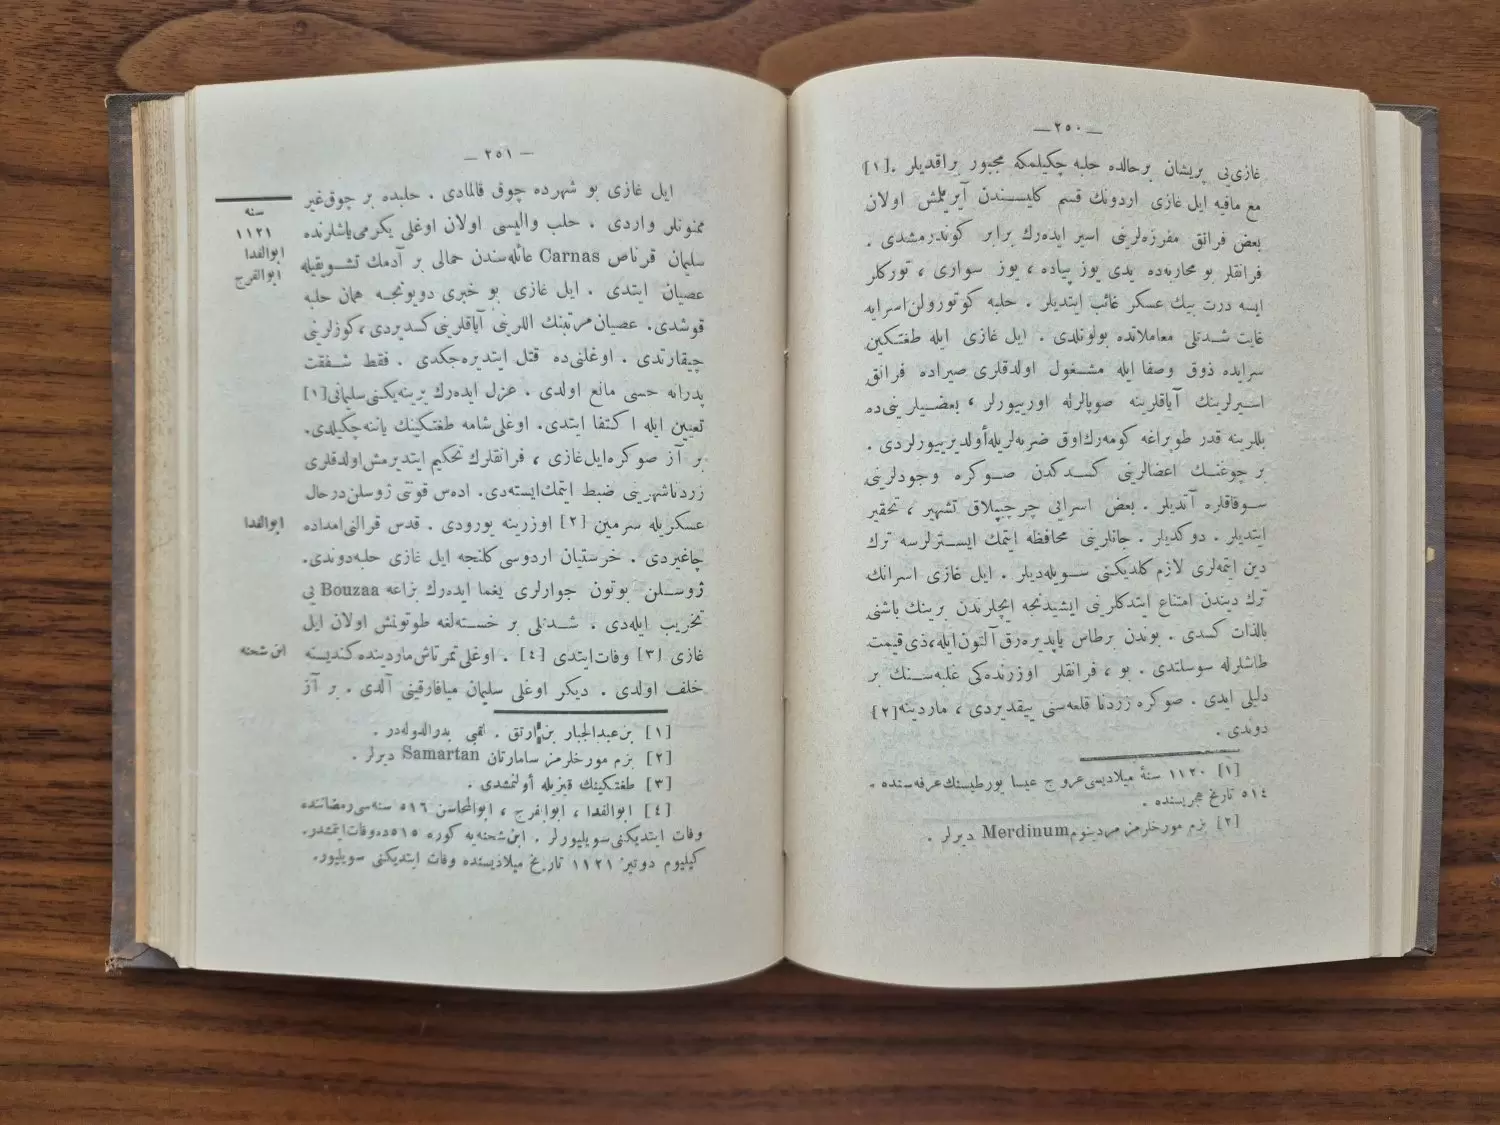 — ٢٥٠ —
غازی‌یی پریشان برحالده حلبه چکیلمکه مجبور براقدیلر .[١]
مع مافیه ایل غازی اردونك قسم کلیسندن آیریلمش اولان
بعض فرانق مفرزه‌لرینی اسیر ایده‌رك برابر کوندرمشدی .
فرانقلر بو محاربه‌ده یدی یوز پیاده ، یوز سواری ، تورکلر
ایسه درت بیك عسکر غائب ایتدیلر . حلبه کوتورولن اسرایه
غایت شدتلی معاملاتده بولونلدی . ایل غازی ایله طغتکین
سرایده ذوق وصفا ایله مشغول اولدقلری صیراده فرانق
اسیرلرینك آیاقلرینه صوپالرله اورییورلر ، بعضیلرینی‌ده
بللرینه قدر طوبراغه کومه‌رك اوق ضربه‌لریله أولدیرییورلردی .
برچوغنك اعضالرینی کسدکدن صوکره وجودلرینی
سوقاقلره آتدیلر . بعض اسرایی چرچیپلاق تشهیر ، تحقیر
ایتدیلر . دوکدیلر . جانلرینی محافظه ایتمك ایسترلرسه ترك
دین ایتمه‌لری لازم کلدیکنی سویله‌دیلر . ایل غازی اسرانك
ترك دیندن امتناع ایتدکلرینی ایشیدنجه ایچلرندن برینك باشنی
بالذات کسدی . بوندن برطاس یاپدیره‌رق آلتون ایله، ذی‌قیمت
طاشلرله سوسلتدی . بو ، فرانقلر اوزرنده‌کی غلبه‌سنك بر
دلیلی ایدی . صوکره زردنا قلعه‌سنی ییقدیردی ، ماردینه[٢]
دوندی .
[١] ١١٢٠ سنهٔ میلادیسی عروج عیسا یورطیسنك عرفه‌سنده .
٥١٤ تاریخ هجریسنده .
[٢] بزم مورخلرمز مردینوم Merdinum دیرلر .
— ٢٥١ —
ایل غازی بو شهرده چوق قالمادی . حلبده بر چوق غیر
ممنونلر واردی . حلب والیسی اولان اوغلی یکرمی یاشلرنده
سلیمان قرناص Carnas عائله‌سندن حمالی بر آدمك تشویقیله
عصیان ایتدی . ایل غازی بو خبری دویونجه همان حلبه
قوشدی. عصیان مرتبنك اللرینی آیاقلرینی کسدیردی، کوزلرینی
چیقارتدی . اوغلنی‌ده قتل ایتدیره‌جکدی . فقط شفقت
پدرانه حسی مانع اولدی . عزل ایده‌رك یرینه یکنی سلیمانی[١]
تعیین ایله اکتفا ایتدی. اوغلی شامه طغتکینك یاننه چکیلدی.
بر آز صوکره ایل غازی ، فرانقلرك تحکیم ایتدیرمش اولدقلری
زردنا شهرینی ضبط ایتمك ایسته‌دی. ادەس قونتی ژوسلن درحال
عسکریله سرمین [٢] اوزرینه یورودی . قدس قرالنی امداده
چاغیردی . خرستیان اردوسی کلنجه ایل غازی حلبه دوندی.
ژوسلن بوتون جوارلری یغما ایده‌رك بزاعه Bouzaa یی
تخریب ایله‌دی . شدتلی بر خسته‌لغه طوتولمش اولان ایل
غازی [٣] وفات ایتدی [٤] . اوغلی تمرتاش ماردینده کندیسنه
خلف اولدی . دیکر اوغلی سلیمان میافارقینی آلدی . بر آز
سنه
١١٢١
ابوالفدا
ابوالفرج
ابوالفدا
ابن شحنه
[١] بن عبدالجبار بن ارتق . لقبی بدرالدوله‌در .
[٢] بزم مورخلرمز سامارتان Samartan دیرلر .
[٣] طغتکینك قیزیله أولنمشدی .
[٤] ابوالفدا ، ابوالفرج ، ابوالمحاسن ٥١٦ سنه‌سی رمضاننده
وفات ایتدیکنی سویلیورلر . ابن شحنه‌یه کوره ٥١٥ ده وفات ایتمشدر.
کیلیوم دوتیر ١١٢١ تاریخ میلادیسنده وفات ایتدیکنی سویلیور.